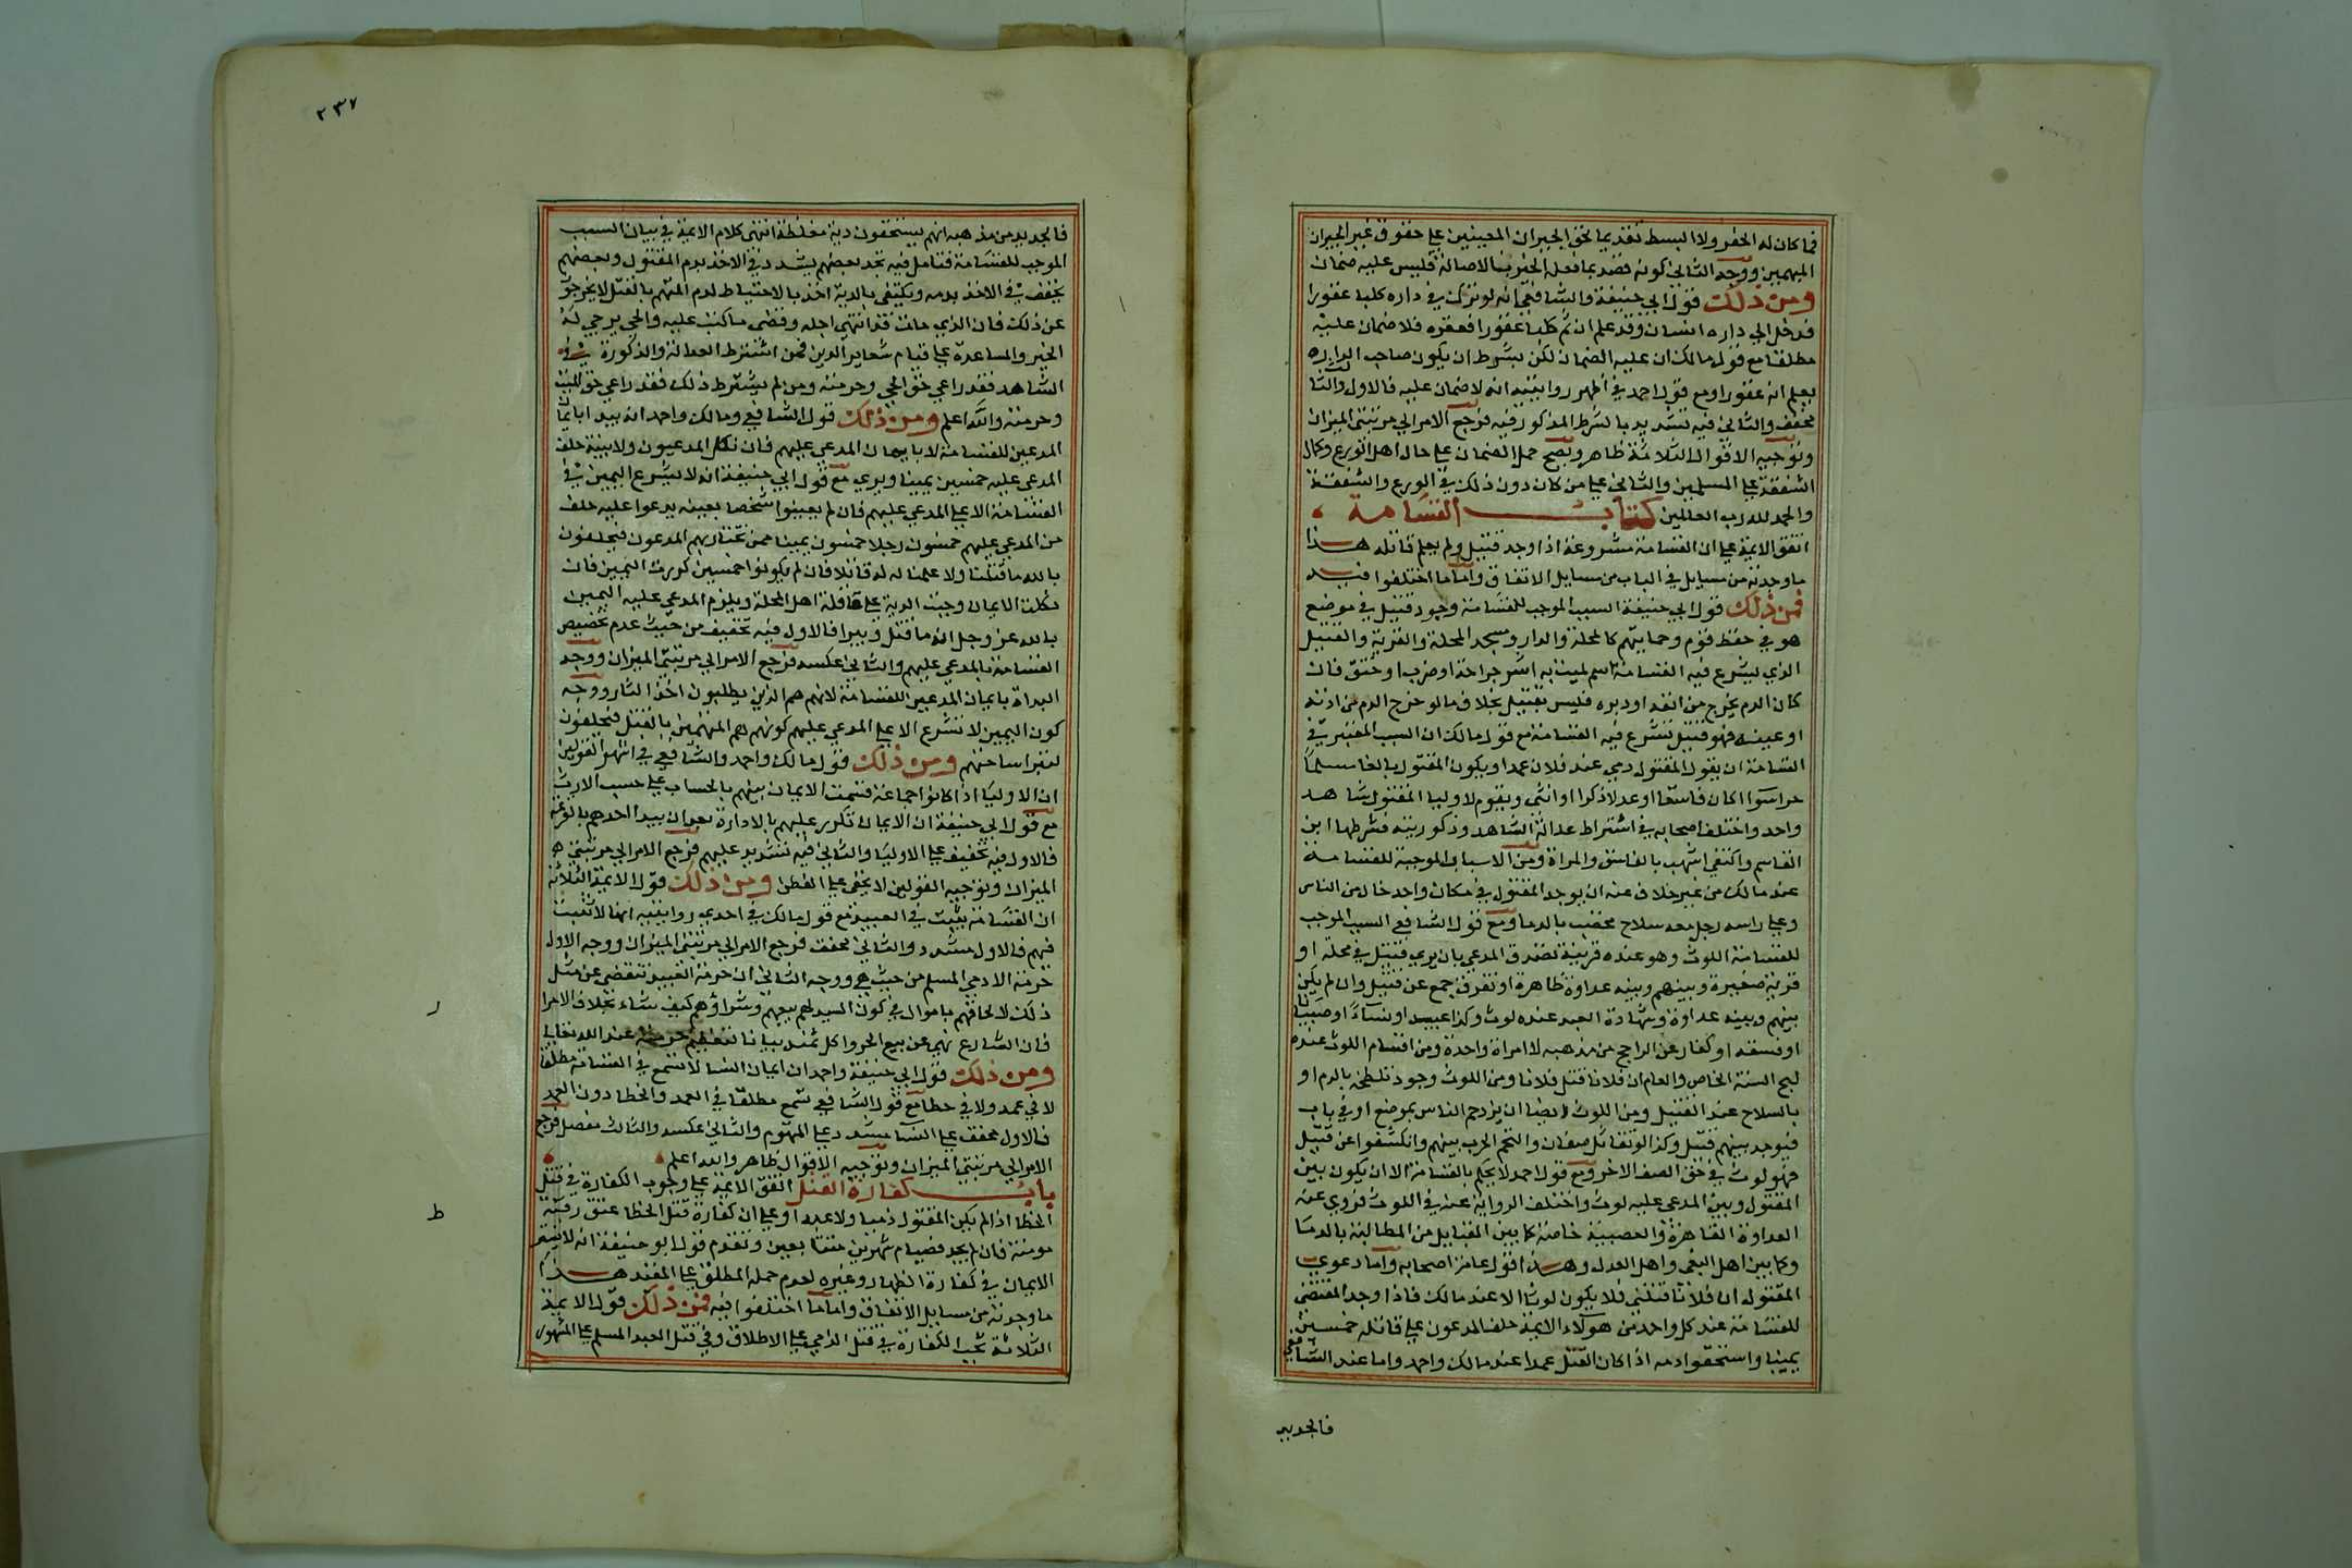 فما كان له الحفر ولا البسط تقديما لحق الجيران المعينين على حقوق غير الجيران
المبهمين ووجه الثاني كونه قصد بما فعله الخير بالاصالة فليس عليه ضمان
ومن ذلك قول ابي حنيفة والشافعي انه لو ترك في داره كلبا عقورا
فدخل الى داره انسان وقد علم ان ثم كلبا عقورا فعقره فلا ضمان عليه
مطلقا مع قول مالك ان عليه الضمان لكن بشرط ان يكون صاحب الدار
يعلم انه عقور او مع قول احمد في اظهر روايتيه انه لا ضمان عليه فالاول والثا
مخفف والثاني فيه تشديد بالشرط المذكور فيه فرجع الامر الى مرتبتي الميزان
وتوجيه الاقوال الثلاثة ظاهر ويصح حمل الضمان على حال اهل الورع وكمال
الشفقة على المسلمين والثاني على من كان دون ذلك في الورع والشفقة
والحمد لله رب العالمين كتاب القسامة
اتفق الائمة على ان القسامة مشروعة اذا وجد قتيل ولم يعلم قاتله هذا
ما وجدته من مسايل في الباب من مسايل الاتفاق واما ما اختلفوا فيه
فمن ذلك قول ابي حنيفة السبب الموجب للقسامة وجود قتيل في موضع
هو في حفظ قوم وحمايتهم كالمحلة والدار ومسجد المحلة والقرية والقتيل
الذي يشرع فيه القسامة اسم لميت به اثر جراحة او ضرب او خنق فان
كان الدم يخرج من انفه او دبره فليس بقتيل بخلاف ما لو خرج الدم من اذنه
او عينه فهو قتيل تشرع فيه القسامة مع قول مالك ان السبب المعتبر في
القسامة ان يقول المقتول دمي عند فلان عمدا ويكون المقتول بالغا مسلما
حرا سوا كان فاسقا او عدلا ذكرا او انثى ويقوم لاوليا المقتول شاهد
واحد واختلف اصحابه في اشتراط عدالة الشاهد وذكوريته فشرطها ابن
القاسم واكتفى اشهب بالفاسق والمراة ومن الاسباب الموجبة للقسامة
عند مالك من غير خلاف عنه ان يوجد المقتول في مكان واحد خال من الناس
وعلى راسه رجل معه سلاح مخضب بالدما ومع قول الشافعي السبب الموجب
للقسامة اللوث وهو عنده قرينة تصدق المدعي بان يرى قتيل في محلة او
قرية صغيرة وبينهم وبينه عداوة ظاهرة او تفرق جمع عن قتيل وان لم يكن
بينهم وبينه عداوة وشهادة العبد عنده لوث وكذا عبيد او نساء او صبيان
او فسقة او كفار عن الراجح من مذهبه لا امراة واحدة ومن اقسام اللوث عنده
لهج السنة الخاص والعام ان فلانا قتل فلانا ومن اللوث وجود تلطخه بالدم او
بالسلاح عند القتيل ومن اللوث ايضا ان يزدحم الناس بموضع او في باب
فيوجد بينهم قتيل وكذا لو تقاتل صفان والتحم الحرب بينهم وانكشفوا عن قتيل
فهو لوث في حق الصف الاخر ومع قول احمد لا يحكم بالقسامة الا ان يكون بين
المقتول وبين المدعى عليه لوث واختلف الرواية عنه في اللوث فروي عنه
العداوة الظاهرة والعصبية خاصة كما بين القبايل من المطالبة بالدما
وكما بين اهل البغي واهل العدل وهذا قول عامة اصحابه واما دعوى
المقتول ان فلانا قتلني فلا يكون لوثا الا عند مالك فاذا وجد المقتضي
للقسامة عند كل واحد من هولاء الائمة حلف المدعون على قاتله خمسين
يمينا واستحقوا دمه اذا كان القتل عمدا عند مالك واحمد واما عند الشافعي
فالجديد
٢٣٧
فالجديد من مذهبه انهم يستحقون دية مغلظة انتهى كلام الائمة في بيان السبب
الموجب للقسامة فتامل فيه تجد بعضهم يشدد في الاخذ بدم المقتول وبعضهم
يخفف في الاخذ بدمه ويكتفي بالدية اخذا بالاحتياط لدم المتهم بالقتل لا يخرجون
عن ذلك فان الذي مات قد انتهى اجله وقضى ما كتب عليه والحي يرجى له
الخير والمساعدة على قيام شعاير الدين فمن اشترط العدالة والذكورة في
الشاهد فقد راعى حق الحي وحرمته ومن لم يشترط ذلك فقد راعى حق الميت
وحرمته والله اعلم ومن ذلك قول الشافعي ومالك واحمد انه يبدا بايمان
المدعين للقسامة لا بايمان المدعى عليهم فان نكل المدعيون ولا بينة حلف
المدعى عليه خمسين يمينا وبري مع قول ابي حنيفة انه لا تشرع اليمين في
القسامة الا على المدعى عليهم فان لم يعينوا شخصا بعينه يدعوا عليه حلف
من المدعى عليهم خمسون رجلا خمسون يمينا ممن تختارهم المدعون فيحلفون
بالله ما قتلنا ولا علمنا له قاتلا فان لم يكونوا خمسين كررت اليمين فان
نكلت الايمان وجبت الدية على عاقلة اهل المحلة ويلزم المدعى عليه اليمين
بالله عز وجل انه ما قتل ويبرا فالاول فيه تخفيف من حيث عدم تخصيص
القسامة بالمدعى عليهم والثاني عكسه فرجع الامر الى مرتبتي الميزان ووجه
البداة بايمان المدعين للقسامة لانهم هم الذين يطلبون اخذ الثار ووجه
كون اليمين لا تشرع الا على المدعى عليهم كونهم هم المتهمين بالقتل فيحلفون
لتبرا ساحتهم ومن ذلك قول مالك واحمد والشافعي في اشهر القولين
ان الاوليا اذا كانوا جماعة قسمت الايمان بينهم بالحساب على حسب الارث
مع قول ابي حنيفة ان الايمان تكرر عليهم بالادارة بعد ان يبدا احدهم بالقرعة
فالاول فيه تخفيف على الاوليا والثاني فيه تشديد عليهم فرجع الامر الى مرتبتي
الميزان وتوجيه القولين لا يخفى على الفطن ومن ذلك قول الائمة الثلاثة
ان القسامة تثبت في العبيد مع قول مالك في احدى روايتيه انها لا تثبت
فيهم فالاول مشدد والثاني مخفف فرجع الامر الى مرتبتي الميزان ووجه الاول
حرمة الادمي المسلم من حيث هو ووجه الثاني ان حرمة العبيد تنقص عن مثل
ذلك لالحاقهم باموال في كون السيد له بيعهم وشراؤهم كيف شاء بخلاف الاحرار
فان الشارع نهى عن بيع الحر واكل ثمنه بيانا لتعظيم حرمته عند الله تعالى
ومن ذلك قول ابي حنيفة واحمد ان ايمان النسا لا تسمع في القسامة مطلقا
لا في عمد ولا في خطا مع قول الشافعي تسمع مطلقا في العمد والخطا دون العمد
فالاول مخفف على النسا مشدد على المتهوم والثاني عكسه والثالث مفصل فرجع
الامر الى مرتبتي الميزان وتوجيه الاقوال ظاهر والله اعلم
باب كفارة القتل اتفق الائمة على وجوب الكفارة في قتل
الخطا اذا لم يكن المقتول ذميا ولا عبدا وعلى ان كفارة قتل الخطا عتق رقبة
مومنة فان لم يجد فصيام شهرين متتابعين وتقدم قول ابو حنيفة انه لا يشترط
الايمان في كفارة الظهار وغيره لعدم حمله المطلق على المقيد هذا
ما وجدته من مسايل الاتفاق واما ما اختلفوا فيه فمن ذلك قول الائمة
الثلاثة تجب الكفارة في قتل الذمي على الاطلاق وفي قتل العبد المسلم على المشهور
ر
ط